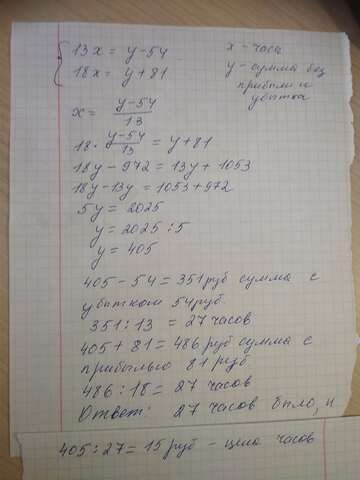 13x = y - 54
18x = y + 81
x - часа
y - сумма без
прибыли и
убытка
x = y-54/13
18 · y-54/13 = y + 81
18y - 972 = 13y + 1053
18y - 13y = 1053 + 972
5y = 2025
y = 2025 : 5
y = 405
405 - 54 = 351 руб сумма с
убытком 54 руб.
351 : 13 = 27 часов
405 + 81 = 486 руб сумма с
прибылью 81 руб
486 : 18 = 27 часов
Ответ: 27 часов было, и
405 : 27 = 15 руб - цена часов